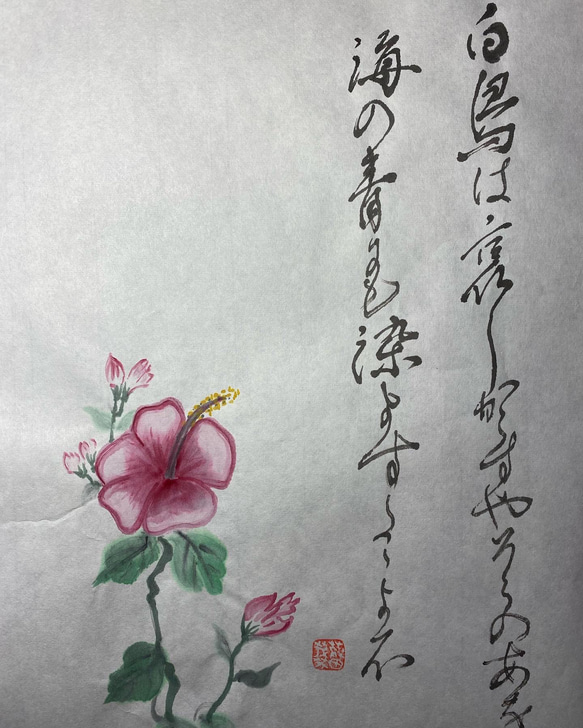 白鳥は哀しからずや空のあを
海の青にも染まずただよふ